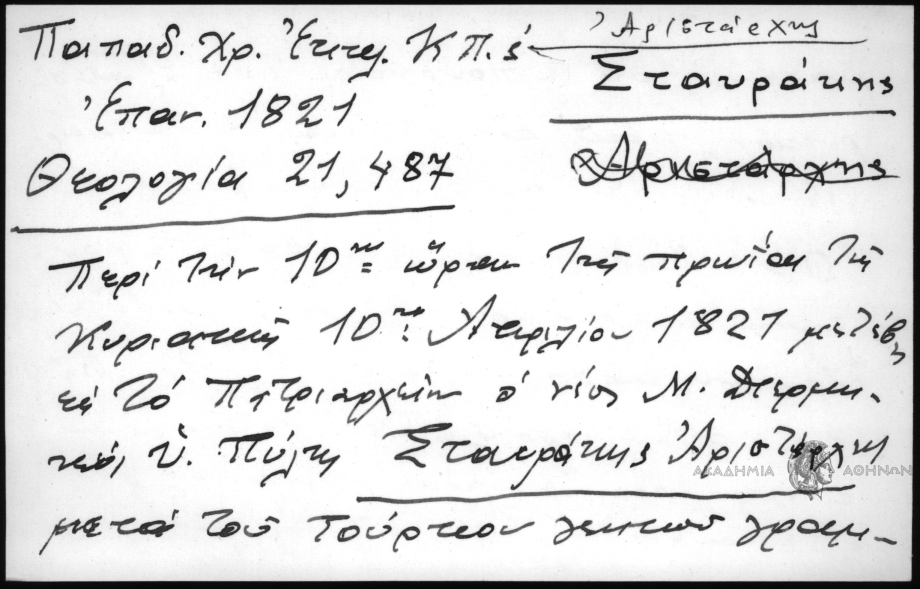 Παπαδ. Χρ. Ἐκκλ. ΚΠ.ς
Ἀριστάρχης
Σταυράκης
Ἐπαν. 1821
Θεολογία 21, 487
Ἀριστάρχης
Περί τήν 10ην ὥραν τῆς πρωΐας τῆς
Κυριακῆς 10ης Ἀπριλίου 1821 μετέβη
εἰς τό Πατριαρχεῖον ὁ νέος Μ. Διερμη-
νεύς Ὑ. Πύλης Σταυράκης Ἀριστάρχης
ΑΚΑΔΗΜΙΑ ΑΘΗΝΩΝ
μετά τοῦ Τούρκου γενικοῦ γραμ-